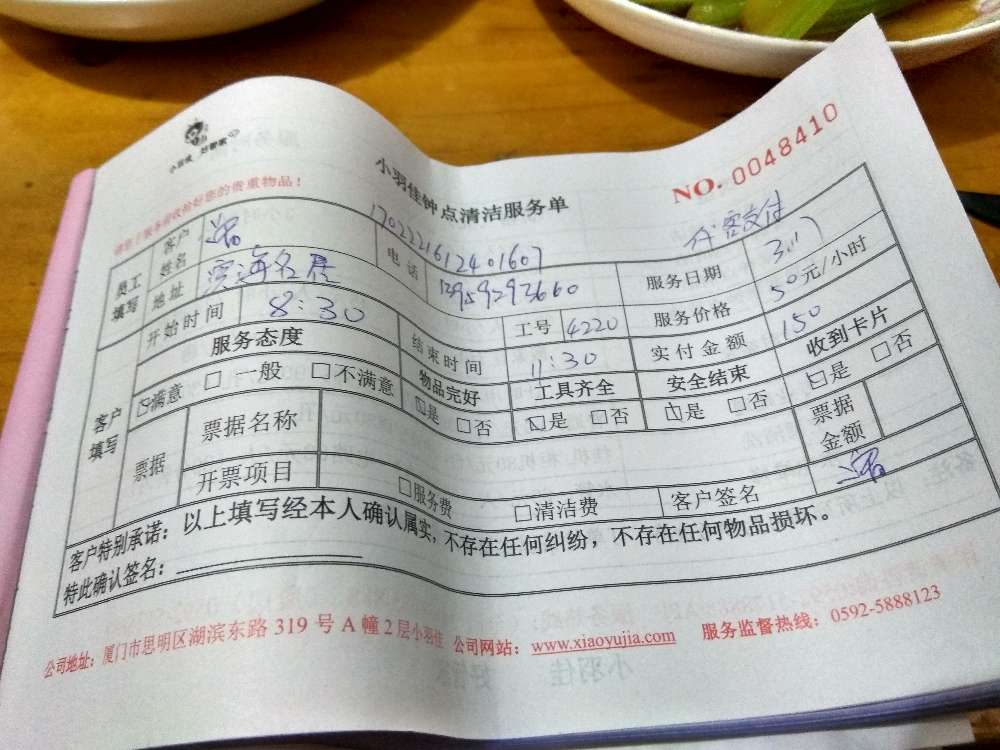 小羽佳 好管家
NO. 0048410
小羽佳钟点清洁服务单
请您于服务前收拾好您的贵重物品！
1702221612401607 代客支付
员工填写 客户姓名 电话 13959293660 服务日期 3.17
地址 滨海名居 工号 4220 服务价格 50元/小时
开始时间 8:30 结束时间 11:30 实付金额 150
客户填写 服务态度 物品完好 工具齐全 安全结束 收到卡片
☑满意 □一般 □不满意 ☑是 □否 ☑是 □否 ☑是 □否 ☑是 □否
票据 票据名称 票据金额
开票项目 □服务费 □清洁费 客户签名
客户特别承诺：以上填写经本人确认属实，不存在任何纠纷，不存在任何物品损坏。
特此确认签名：
公司地址：厦门市思明区湖滨东路 319 号 A 幢 2 层小羽佳 公司网站：www.xiaoyujia.com 服务监督热线：0592-5888123